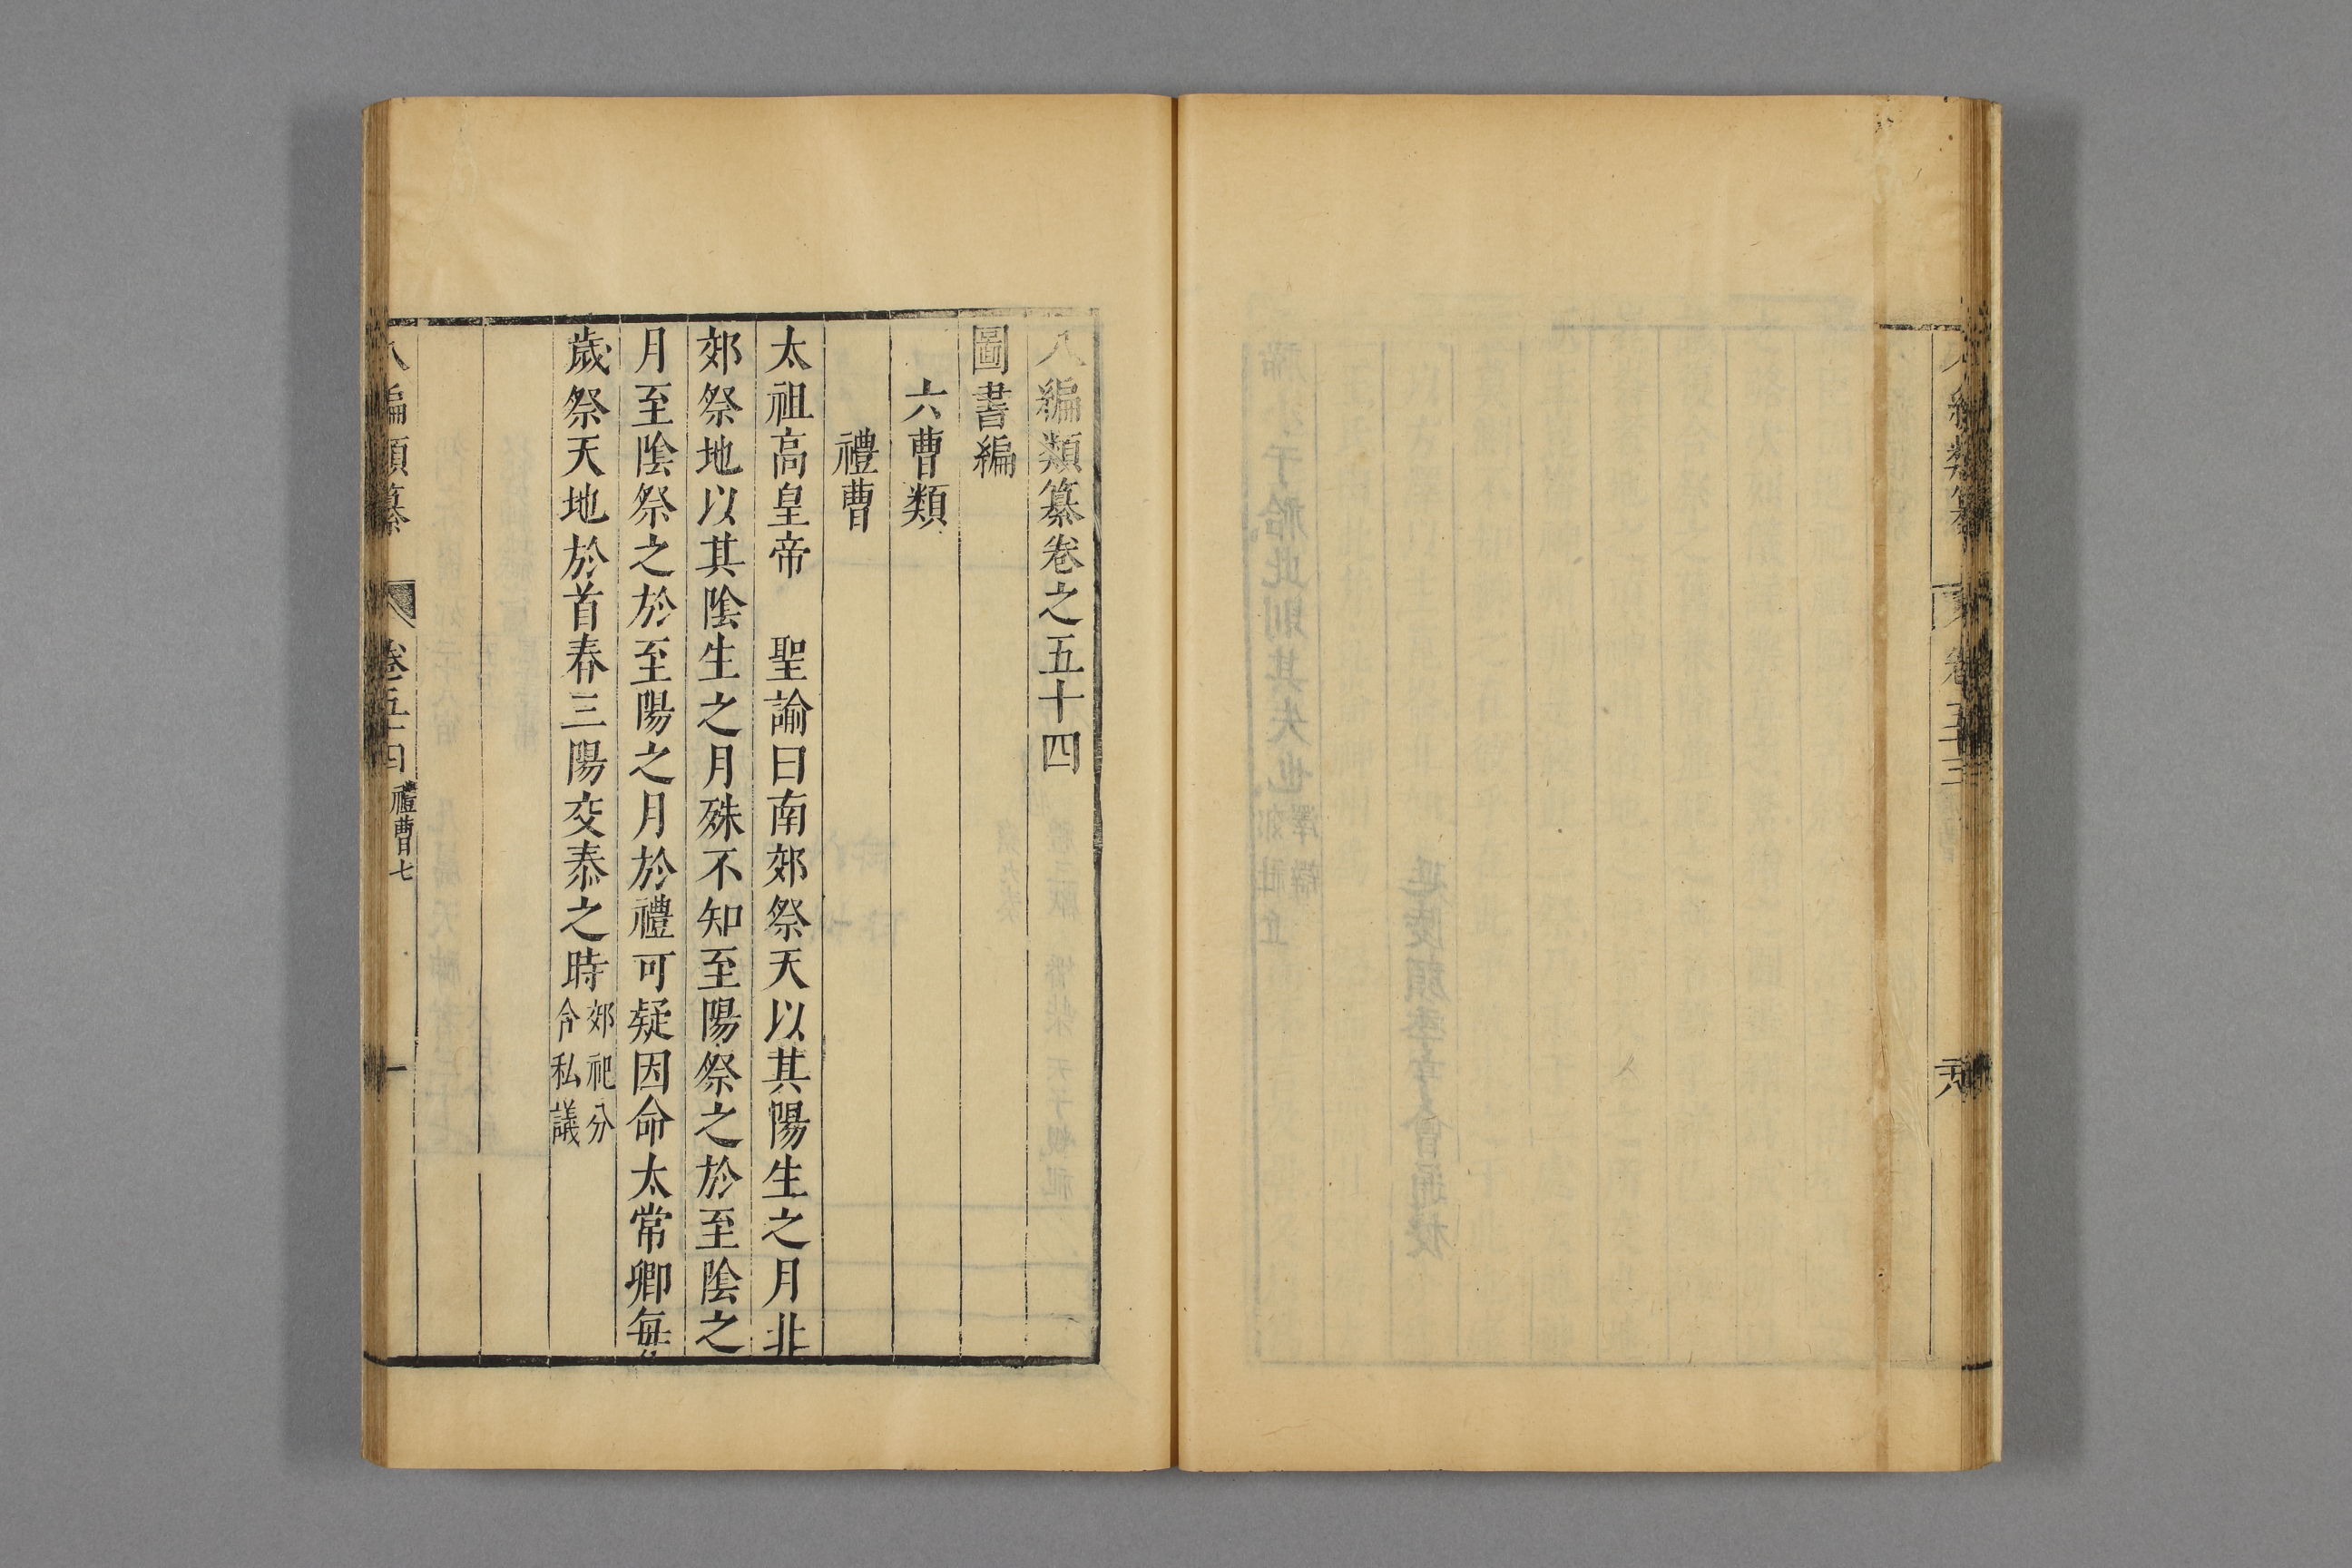 八編類纂卷之五十四
圖書編
六曹類
禮曹
太祖高皇帝　聖諭曰南郊祭天以其陽生之月北
郊祭地以其陰生之月殊不知至陽祭之於至陰之
月至陰祭之於至陽之月於禮可疑因命太常卿每
歲祭天地於首春三陽交泰之時郊祀分
合私議
八編類纂　卷五十四　禮曹七　一